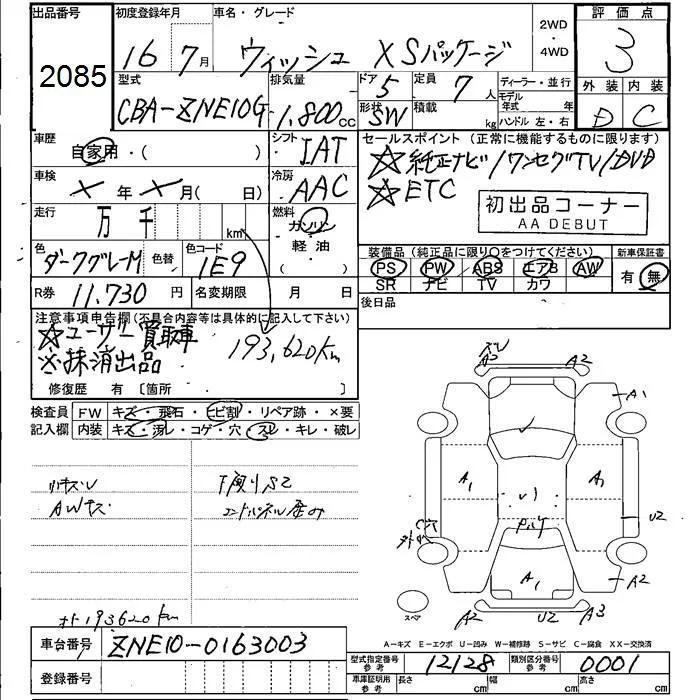 出品番号 初度登録年月 車名・グレード 2WD・4WD 評価点
2085 16 7月 ウィッシュ XSパッケージ 3
型式 排気量 ドア 5 定員 7人 ディーラー・並行 外装 内装
CBA-ZNE10G 1,800cc 形状 SW 積載 kg モデル年式 年 ハンドル 左・右 D C
車歴 自家用・( ) シフト IAT セールスポイント(正常に機能するものに限ります)
☆純正ナビ/ワンセグTV/DVD
車検 X年X月(日) 冷房 AAC ☆ETC
初出品コーナー
AA DEBUT
走行 万 千 km 燃料 ガソリン
軽油
( )
色 ダークグレーM 色替 色コード 1E9 装備品(純正品に限り○をつけてください) 新車保証書
PS PW ABS エアB AW 有 無
SR ナビ TV カワ
R券 11,730円 名変期限 月 日 後日品
注意事項申告欄(不具合内容等は具体的に記入して下さい)
☆ユーザー買取車
※抹消出品
193,620km
修復歴 有〔箇所 〕
検査員 FW キズ・飛石・ヒビ割・リペア跡・×要
記入欄 内装 キズ・汚レ・コゲ・穴・スレ・キレ・破レ
A2 A2
A1
A1 A1
AWキズ
U2
A1 A2
A2 U2 A3
スペア
193620km
A-キズ E-エクボ U-凹み W-補修跡 S-サビ C-腐食 XX-交換済
車台番号 ZNE10-0163003 型式指定番号 参考 12128 類別区分番号 参考 0001
登録番号 車庫証明用 参考 長さ cm 幅 cm 高さ cm